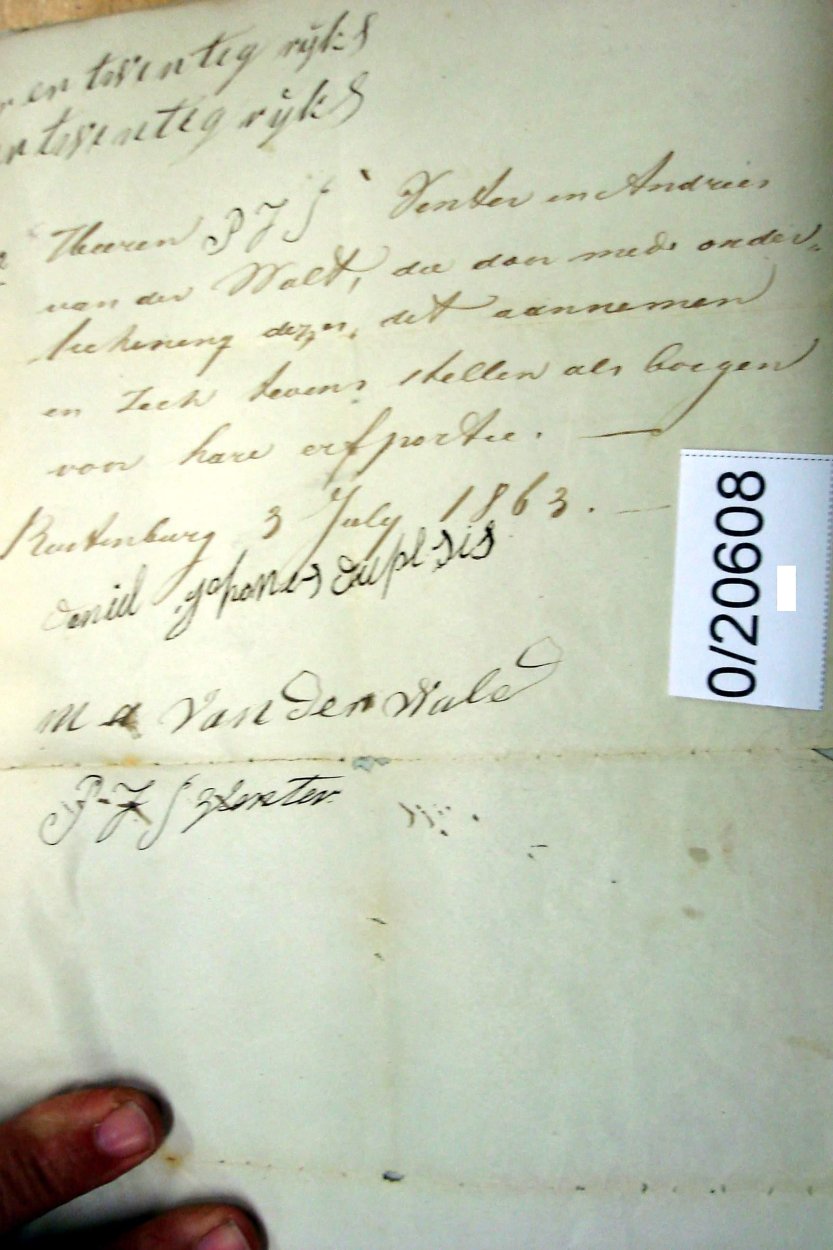 en twentig rijks
twentig rijks
Heeren P J S Venter en Andries
van der Walt, die door mede onder-
teekening dezer, dit aannemen
en zech tevens stellen als borgen
voor hare erfportie. —
Rustenburg 3 July 1863. —
daniel johanes duplsis
m a van der walt
P. J S Venter
0/20608